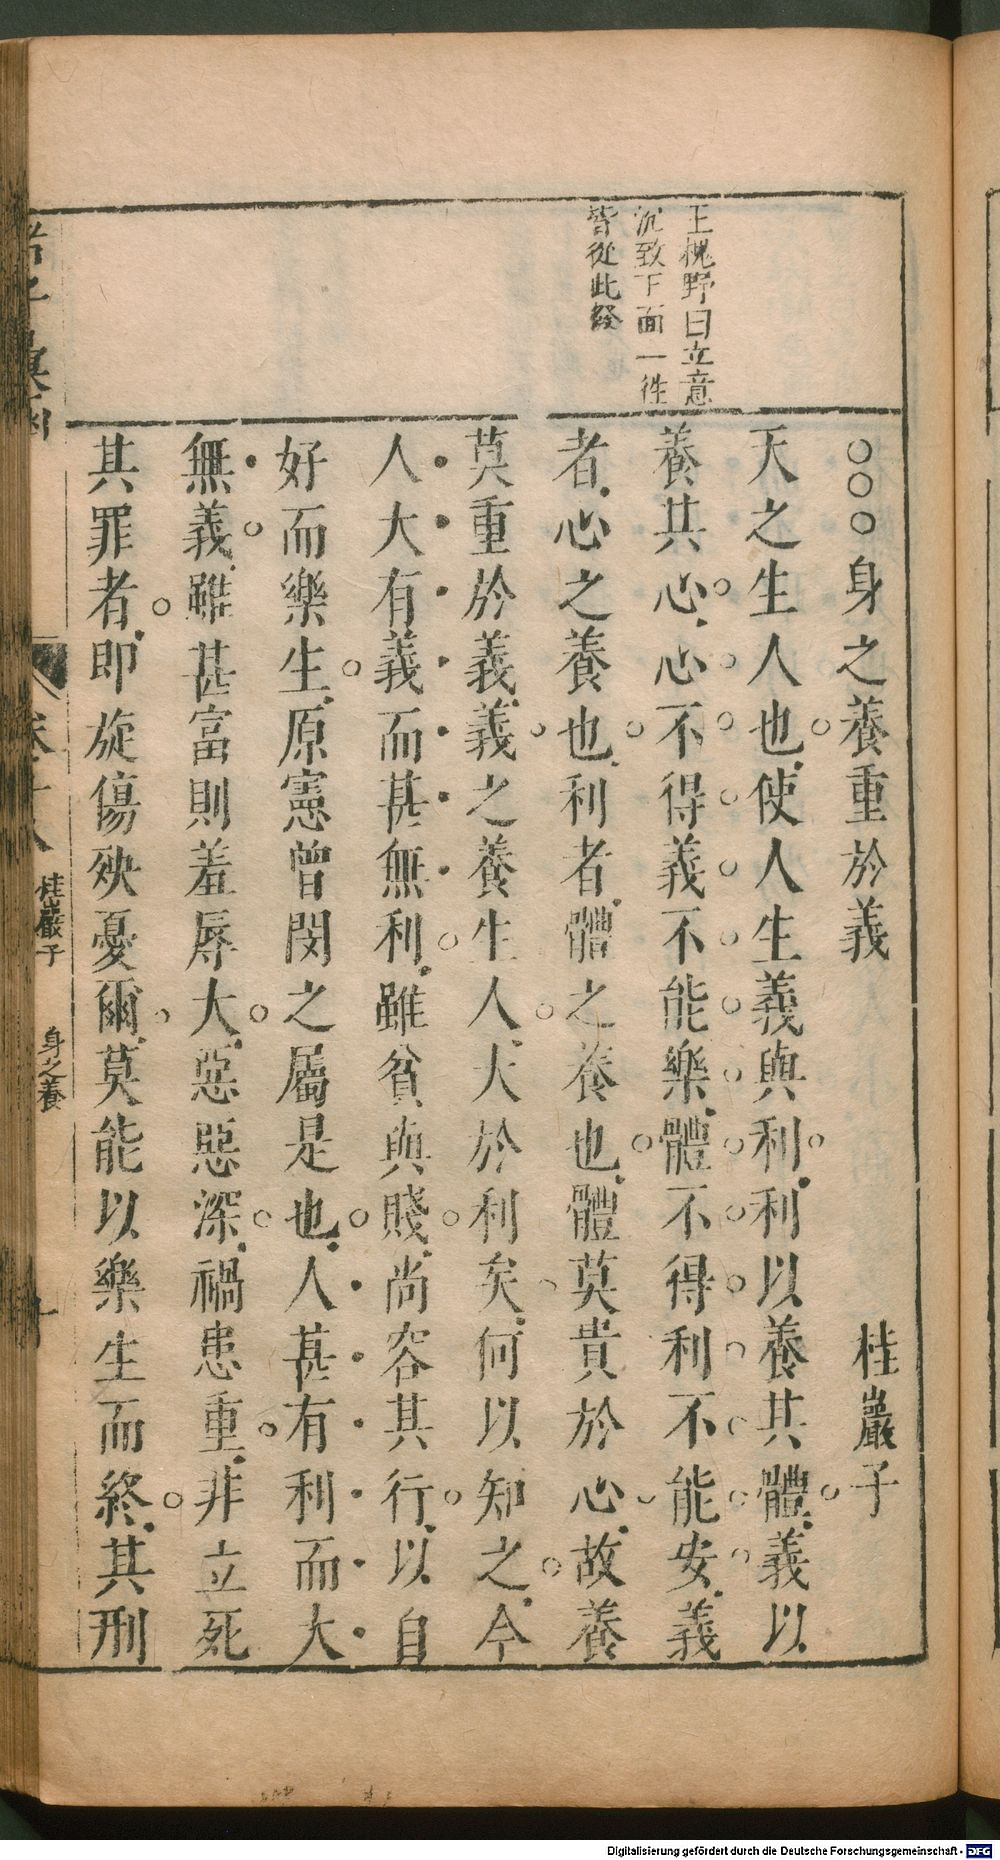 王槐野曰立意
沉致下面一徃
皆從此發
○○○身之養重於義 桂巖子
天之生人也使人生義與利利以養其體義以
養其心心不得義不能樂體不得利不能安義
者心之養也利者體之養也體莫貴於心故養
莫重於義義之養生人大於利矣何以知之今
人大有義而甚無利雖貧與賤尚容其行以自
好而樂生原憲曾閔之屬是也人甚有利而大
無義雖甚富則羞辱大惡惡深禍患重非立死
其罪者即旋傷殃憂爾莫能以樂生而終其刑
桂巖子 身之養
Digitalisierung gefördert durch die Deutsche Forschungsgemeinschaft - DFG